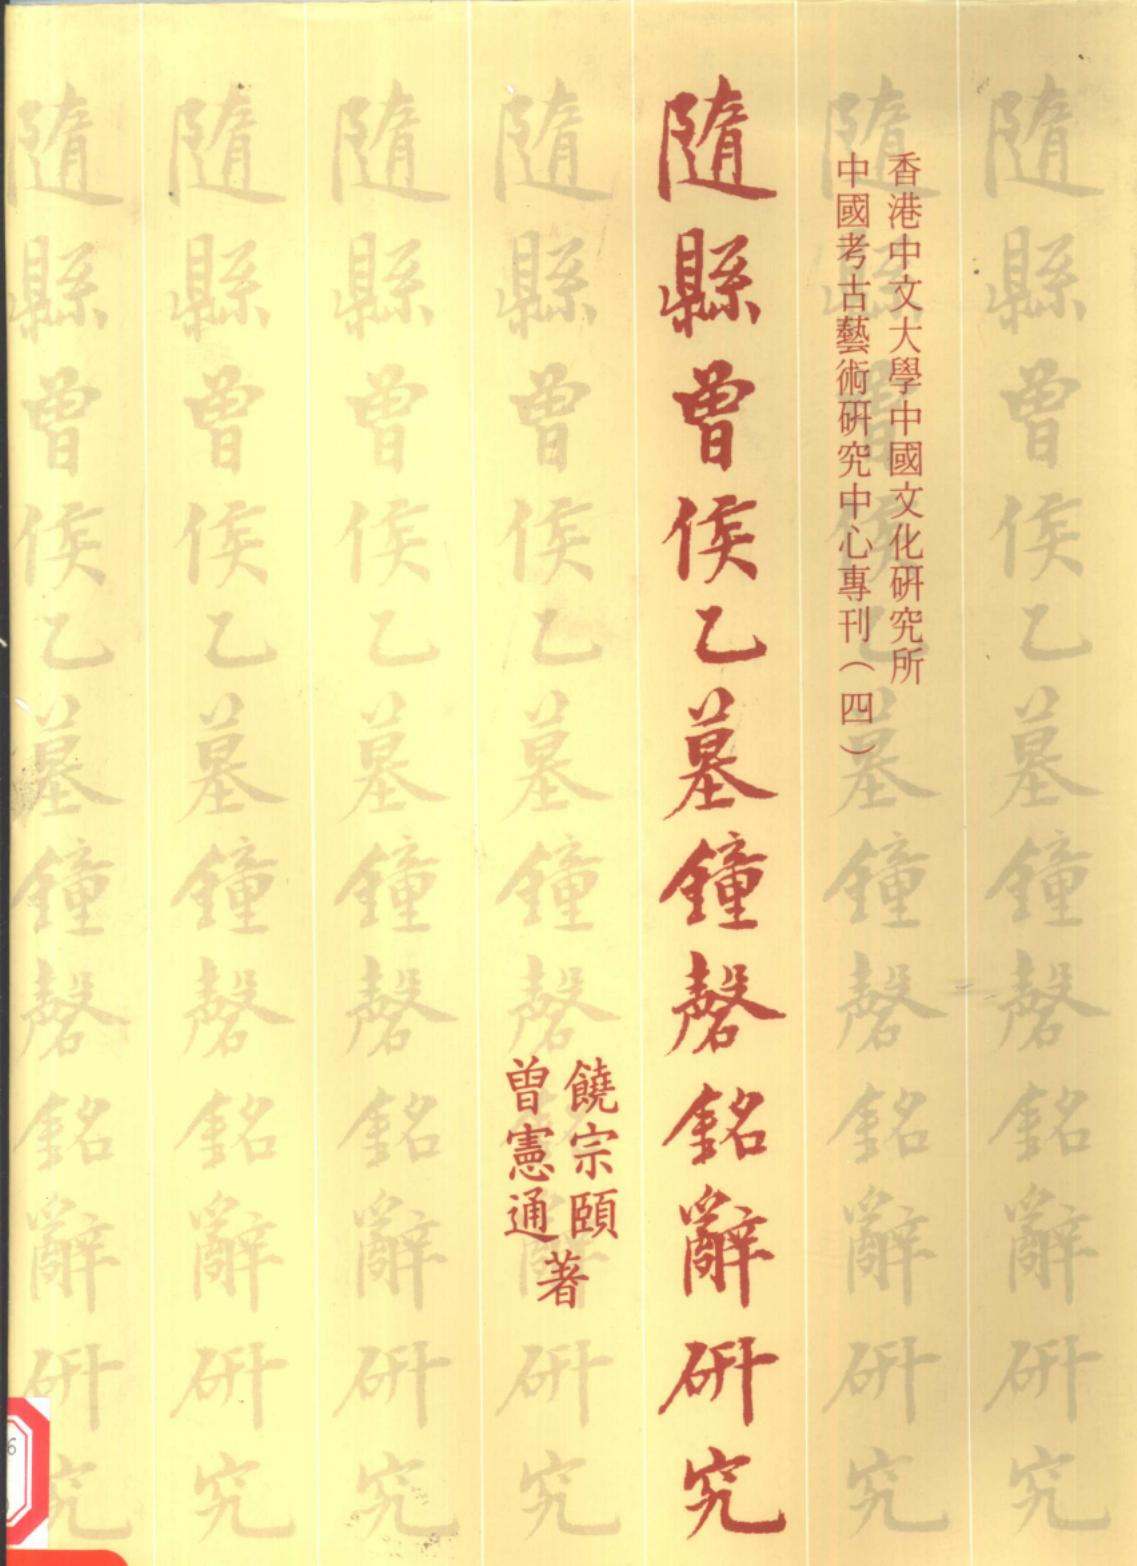 隨縣曾侯乙墓鐘磬銘辭研究
香港中文大學中國文化研究所
中國考古藝術研究中心專刊（四）
隨縣曾侯乙墓鐘磬銘辭研究
隨縣曾侯乙墓鐘磬銘辭研究
饒宗頤
曾憲通
著
隨縣曾侯乙墓鐘磬銘辭研究
隨縣曾侯乙墓鐘磬銘辭研究
隨縣曾侯乙墓鐘磬銘辭研究
隨縣曾侯乙墓鐘磬銘辭研究
6